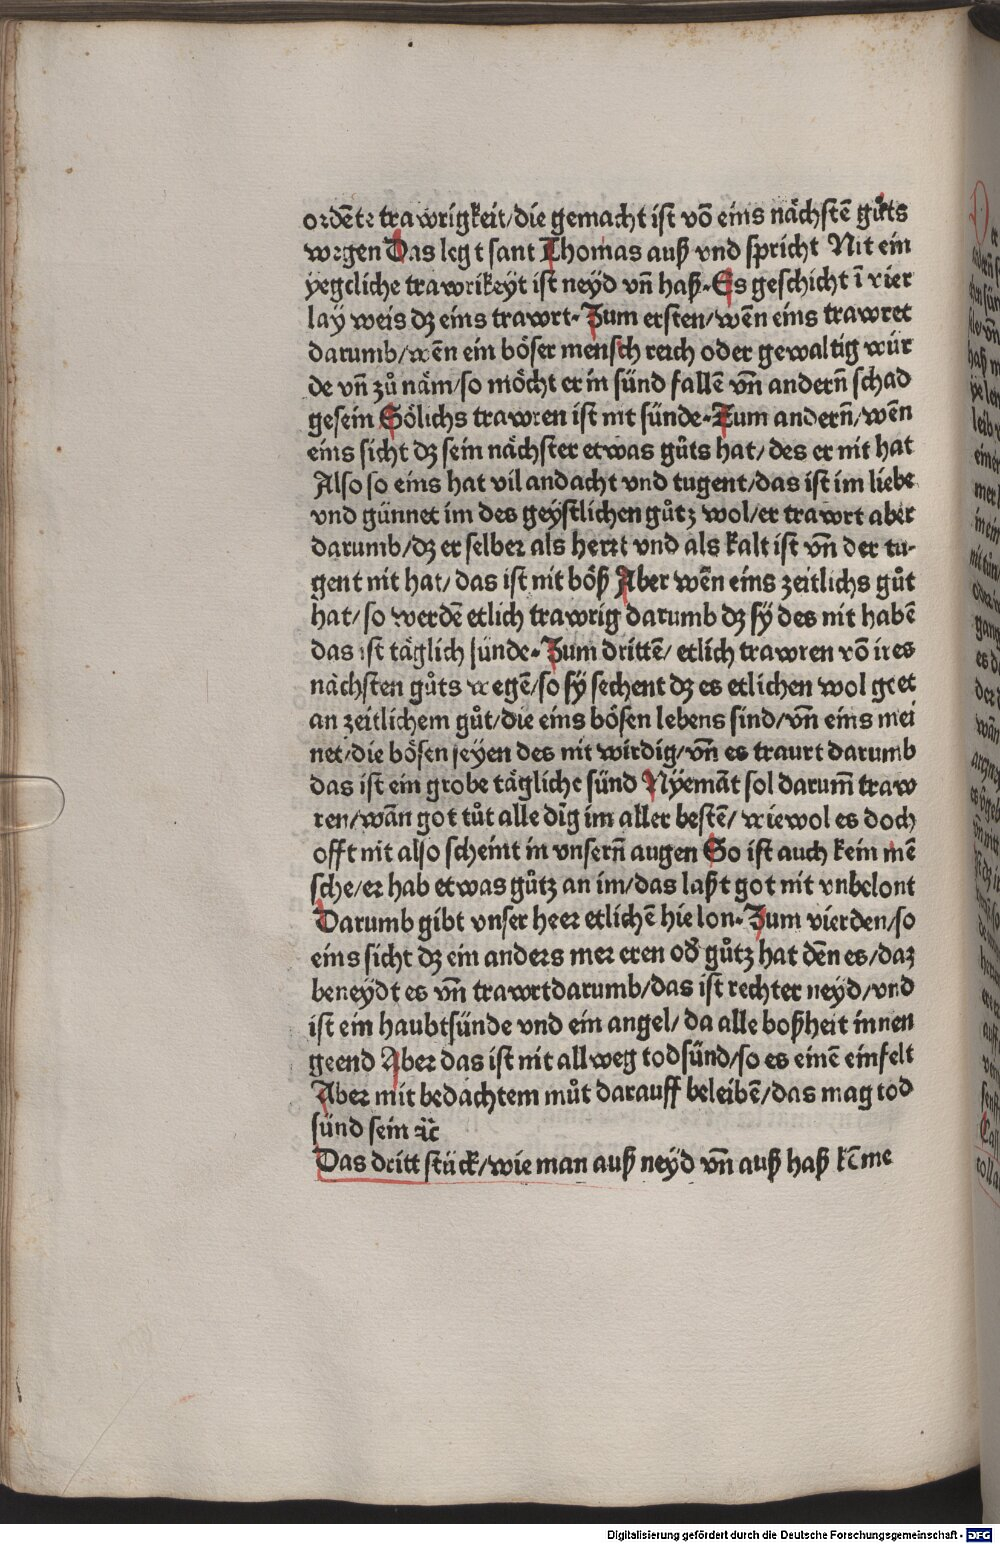 ordēte trawrigkeit/die gemacht ist vō eins nächstē gůts
wegen Das legt sant Thomas auß vnd spricht Nit ein
yegcliche trawrikeyt ist neyd vn̄ haß. Es geschicht ī vier
laÿ weis dz eins trawrt. Zum ersten/wēn eins trawret
darumb/wēn ein böser mensch reich oder gewaltig wür
de vn̄ zů näm/so möcht er in sünd fallē vn̄ andern̄ schad
gesein Sölichs trawren ist nit sünde. Zum andern̄/wēn
eins sicht dz sein nächster etwas gůts hat/des er nit hat
Also so eins hat vil andacht vnd tugent/das ist im liebe
vnd günnet im des geystlichen gůtz wol/er trawrt aber
darumb/dz er selber als hertt vnd als kalt ist vn̄ der tu-
gent nit hat/das ist nit böß Aber wēn eins zeitlichs gůt
hat/so werdē etlich trawrig darumb dz sÿ des nit habē
das ist täglich sünde. Zum drittē/etlich trawren vō ires
nächsten gůts wegē/so sÿ sechent dz es etlichen wol geet
an zeitlichem gůt/die eins bösen lebens sind/vn̄ eins mei
net/die bösen seyen des nit wirdig/vn̄ es traurt darumb
das ist ein grobe tägliche sünd Nyemāt sol darum̄ traw
ren/wān got tůt alle dīg im aller bestē/wiewol es doch
offt nit also scheint in vnsern̄ augen So ist auch kein mē
sche/er hab etwas gůtz an im/das laßt got nit vnbelont
Darumb gibt vnser heer etlichē hie lon. Zum vierden/so
eins sicht dz ein anders mer eren od̄ gůtz hat dēn es/daz
beneydt es vn̄ trawrt darumb/das ist rechter neyd/vnd
ist ein haubtsünde vnd ein angel/da alle boßheit innen
geend Aber das ist nit allweg todsünd/so es einē einfelt
Aber mit bedachtem můt darauff beleibē/das mag tod
sünd sein ꝛc̄
Das dritt stück/wie man auß neÿd vn̄ auß haß kēme
Digitalisierung gefördert durch die Deutsche Forschungsgemeinschaft - DFG